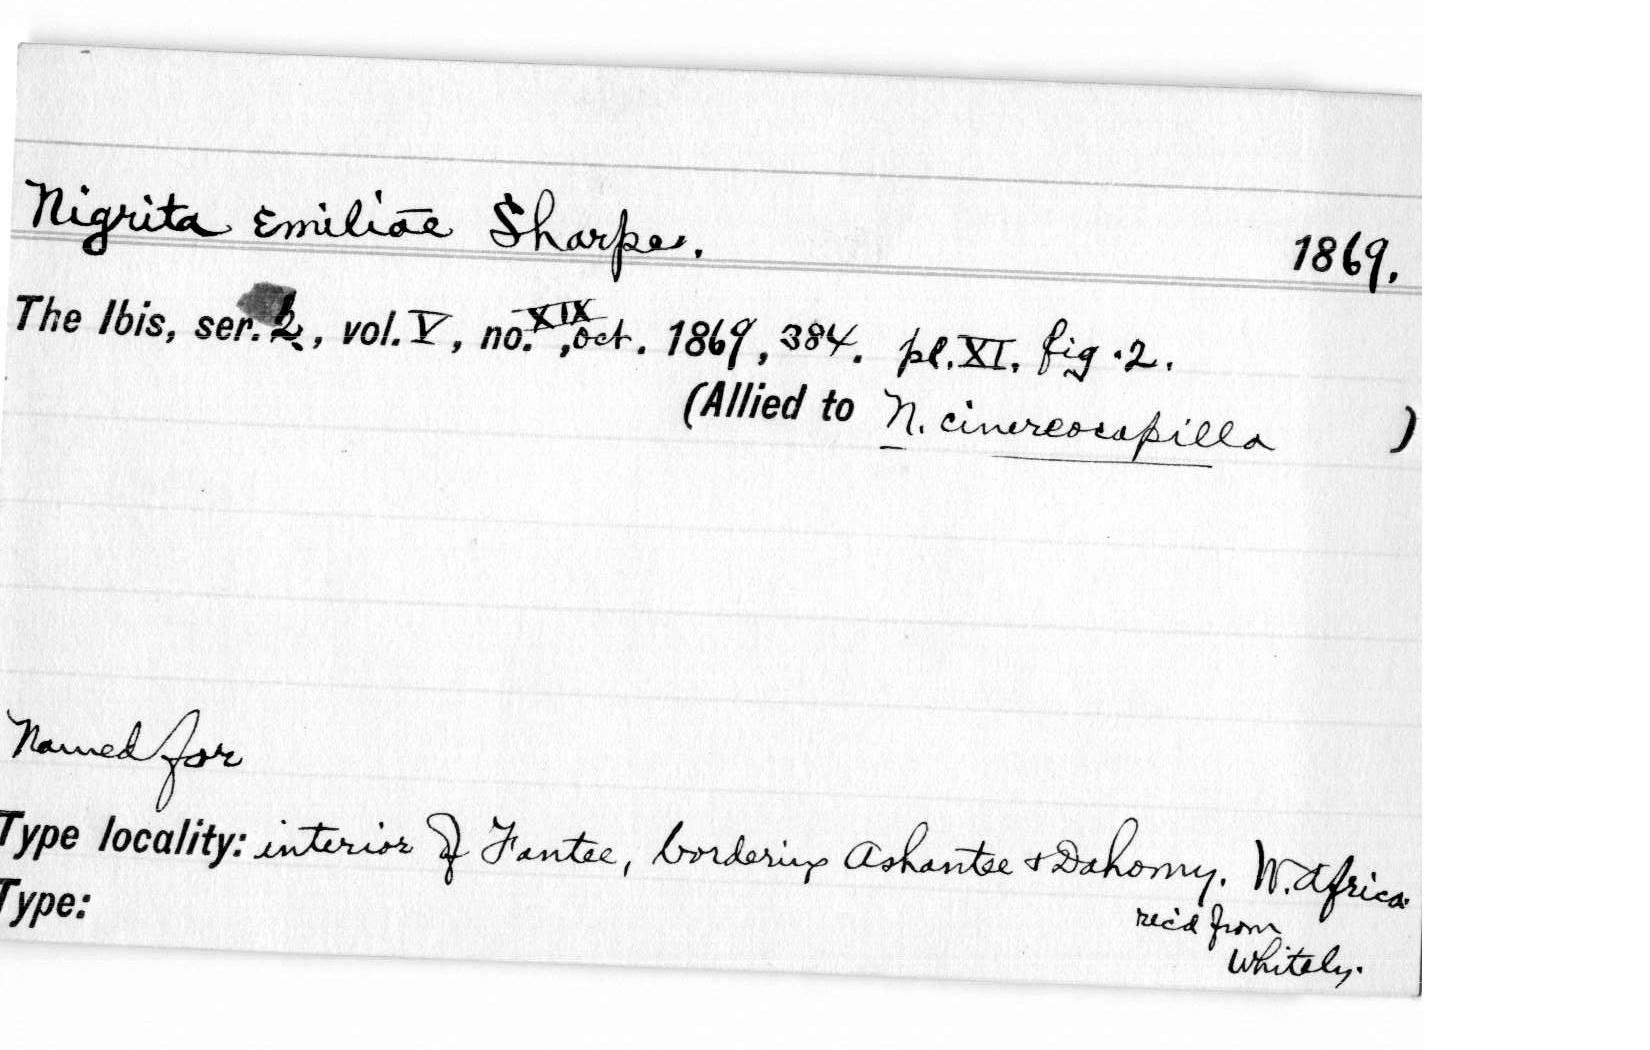 Nigrita Emiliae Sharpe. 1869.
The Ibis, ser. 2, vol. V, no. XIX, oct. 1869, 384. pl. XI. fig. 2.
(Allied to N. cinereocapilla )
Named for
Type locality: interior of Fantee, bordering Ashantee & Dahomy. W. Africa.
rec'd from
Whitely.
Type: